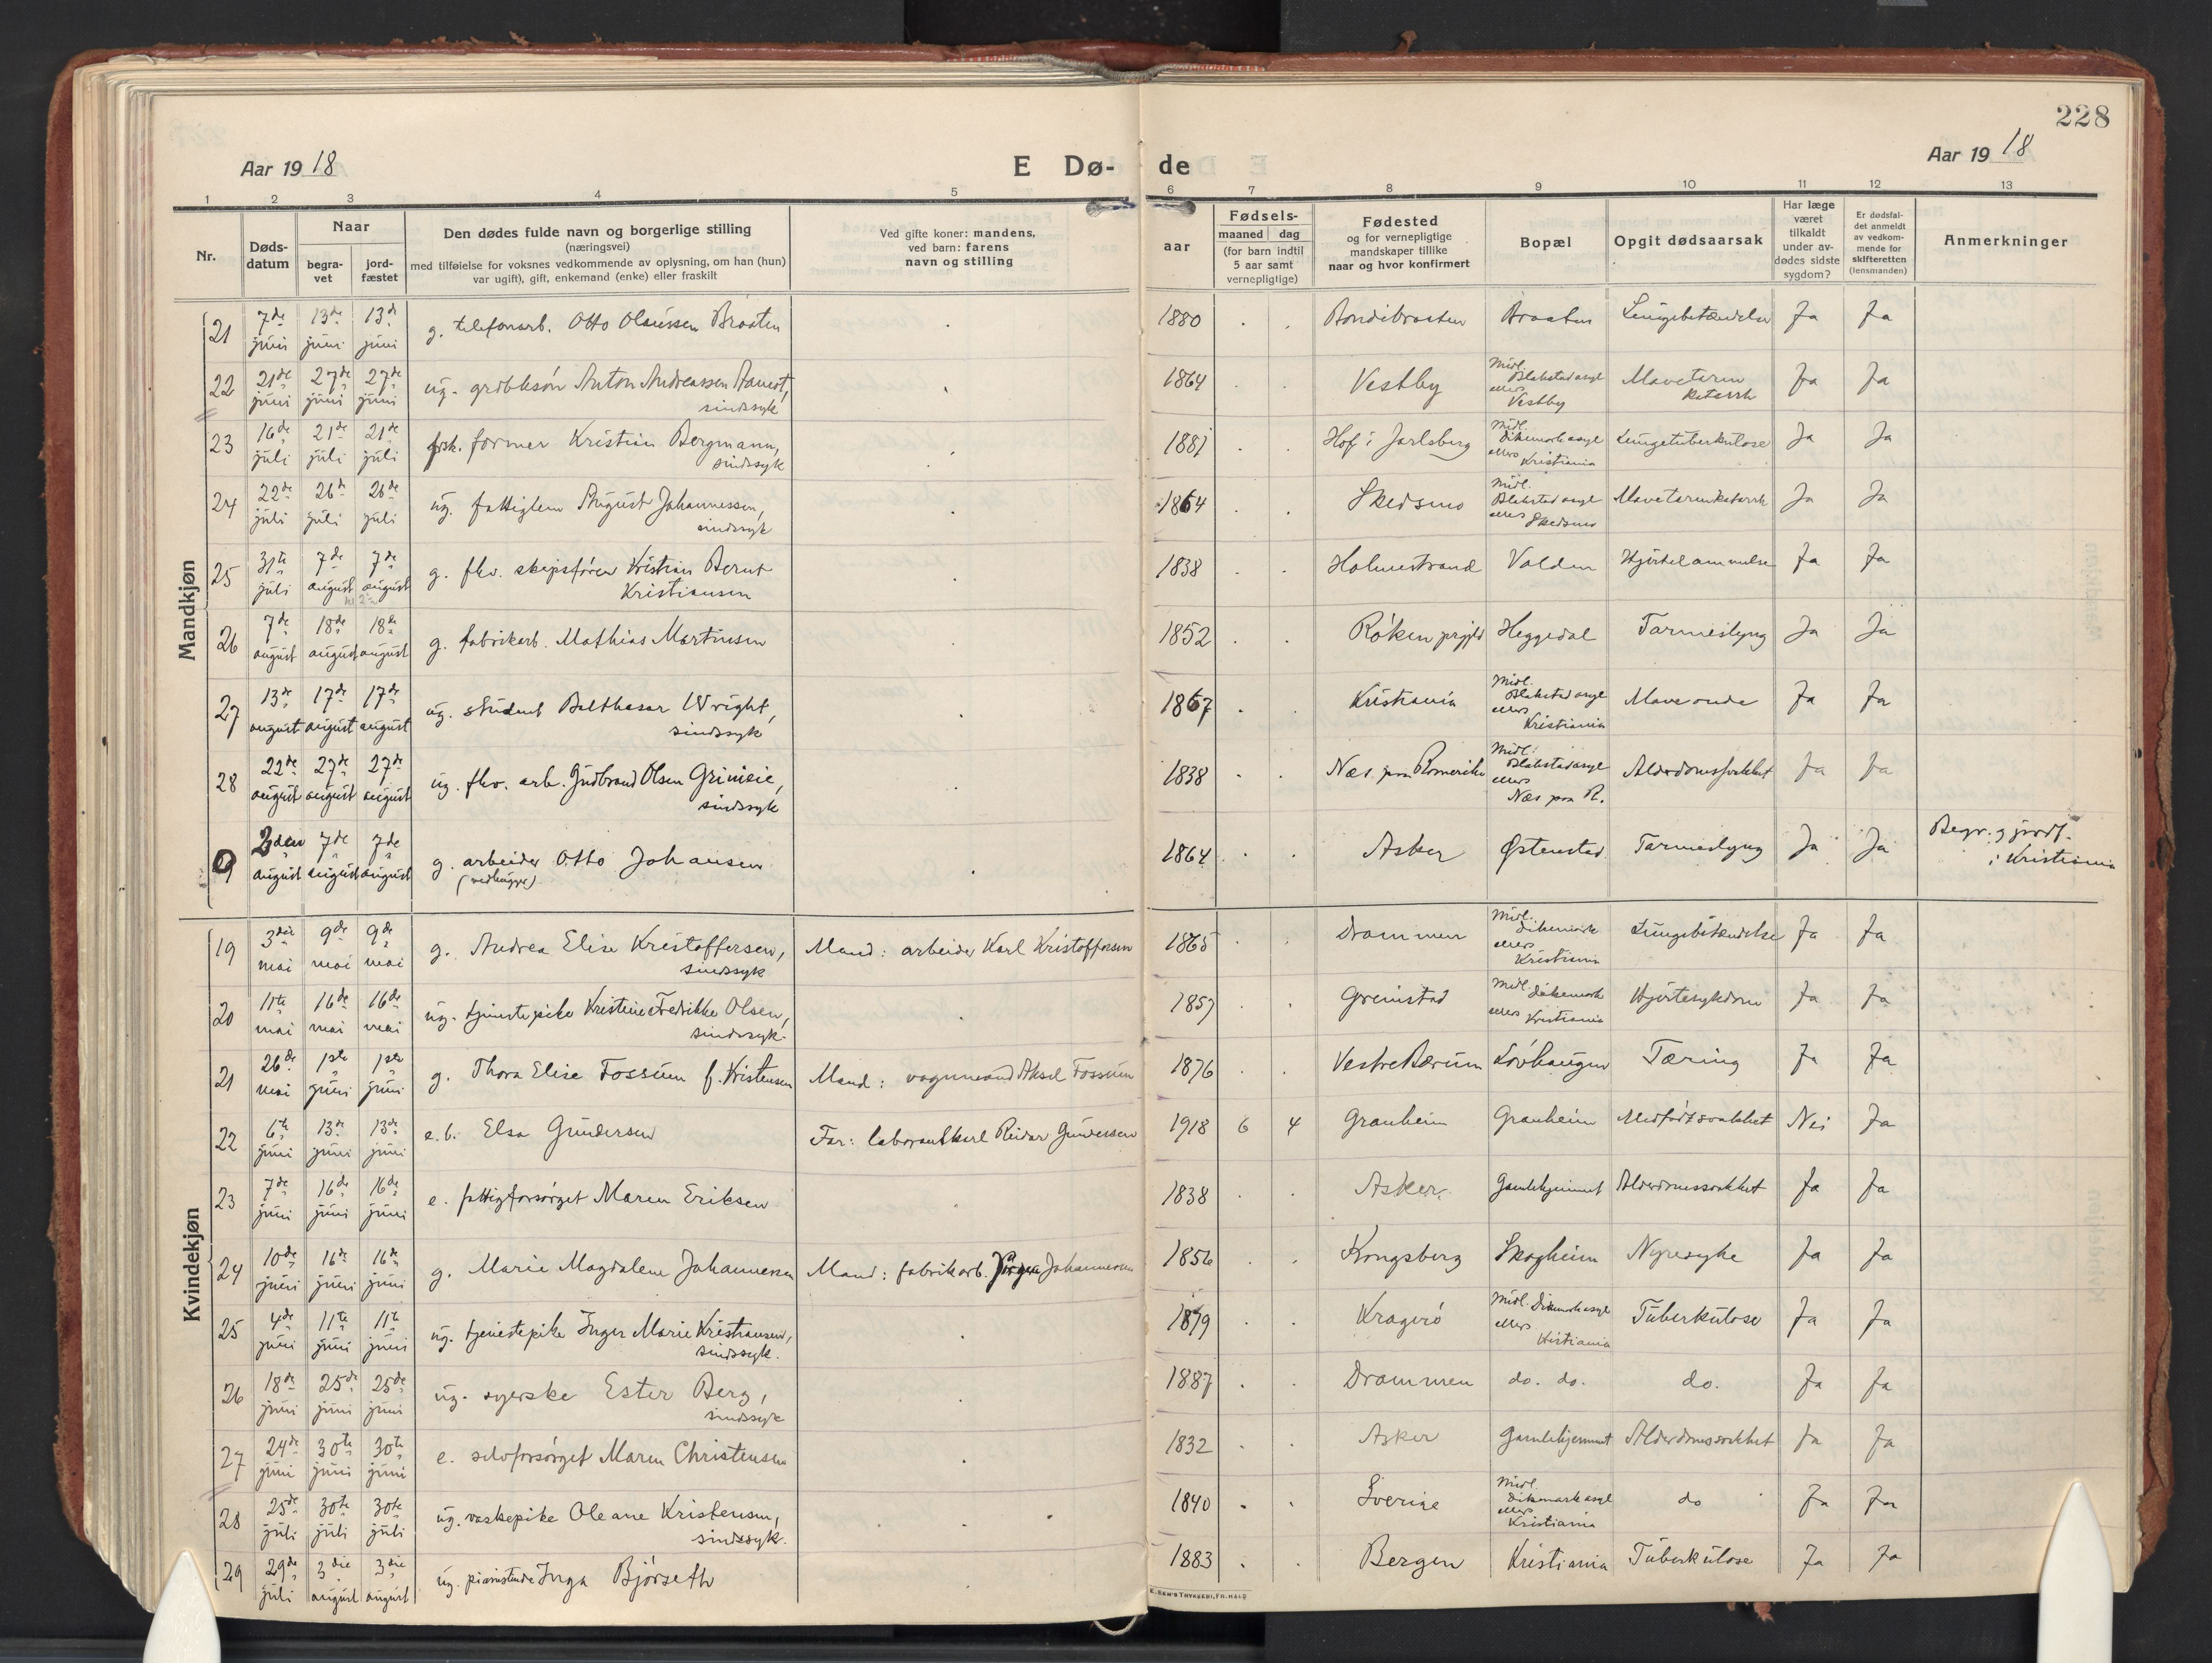 228
Aar 1918
E Dø-
de
Aar 1918
1 2 3 4 5 6 7 8 9 10 11 12 13
Nr.
Døds-
datum
Naar
begra-
vet
jord-
fæstet
Den dødes fulde navn og borgerlige stilling
(næringsvei)
med tilføielse for voksnes vedkommende av oplysning, om han (hun)
var ugift), gift, enkemand (enke) eller fraskilt
Ved gifte koner: mandens,
ved barn: farens
navn og stilling
aar
Fødsels-
maaned dag
(for barn indtil
5 aar samt
vernepligtige)
Fødested
og for vernepligtige
mandskaper tillike
naar og hvor konfirmert
Bopæl
Opgit dødsaarsak
Har læge
været
tilkaldt
under av-
dødes sidste
sygdom?
Er dødsfal-
det anmeldt
av vedkom-
mende for
skifteretten
(lensmanden)
Anmerkninger
Mandkjøn
21 7de juni 13de juni 13de juni g. telefonarb. Otto Olaussen Braaten 1880 Bondibraaten Braaten Lungebetændelse Ja Ja
22 21de juni 27de juni 27de juni ug. grdbksøn Anton Andreassen
sindssyk 1864 Vestby Midl. Blakstad asyl ellers Vestby Mavetarm katarrh Ja Ja
23 16de juli 21de juli 21de juli frsk. former Kristian Bergmann,
sindssyk 1881 Hof i Jarlsberg Midl. Dikemark asyl ellers Kristiania Lungetuberkulose Ja Ja
24 22de juli 26de juli 26de juli ug. fattiglem August Johannessen,
sindssyk 1864 Skedsmo Midl. Blakstad asyl ellers Skedsmo Mavetarmkatarrh Ja Ja
25 31te juli 7de august 7de august g. fhv. skipsfører Kristian Bernt
Kristiansen 1838 Holmestrand Volden Hjertelammelse Ja Ja
26 7de august 18de august 18de august g. fabrikarb. Mathias Martinsen 1852 Røken prgjld Heggedal Tarmeslyng Ja Ja
27 13de august 17de august 17de august ug. student Balthasar Wright,
sindssyk 1867 Kristiania Midl. Blakstad asyl ellers Kristiania Mave onde Ja Ja
28 22de august 27de august 27de august ug. fhv. arb. Gudbrand Olsen Grinieie,
sindssyk 1838 Næs paa Romerike Midl. Blakstad asyl ellers Næs paa R. Alderdomssvakhet Ja Ja
9 2den august 7de august 7de august g. arbeider Otto Johansen
(vedhugger) 1864 Asker Østenstad Tarmeslyng Ja Ja Begr. g jordf.
i Kristiania
Kvindekjøn
19 3die mai 9de mai 9de mai g. Andrea Elise Kristoffersen,
sindssyk Mand: arbeider Karl Kristoffersen 1865 Drammen Midl. Dikemark ellers Kristiania Lungebetændelse Ja Ja
20 11te mai 16de mai 16de mai ug. tjenestepike Kristine Fredrikke Olsen,
sindssyk. 1857 Grimstad Midl. Dikemark ellers Kristiania Hjertesykdom Ja Ja
21 26de mai 1ste juni 1ste juni g. Thora Elise Fossum f. Kristensen Mand: vognmand Aksel Fossum 1876 Vestre Bærum Løvhaugen Tæring Ja Ja
22 6te juni 13de juni 13de juni e.b. Elsa Gundersen Far: laborantkarl Reidar Gundersen 1918 6 4 Granheim Granheim Medfødt svakhet Nei Ja
23 7de juni 16de juni 16de juni e. fattigforsørget Maren Eriksen 1838 Asker Gamlehjemmet Alderdomssvakhet Ja Ja
24 10de juni 16de juni 16de juni g. Marie Magdalene Johannessen Mand: fabrikarb. Jørgen Johannessen 1856 Kongsberg Skogheim Nyresyke Ja Ja
25 4de juni 11te juni 11te juni ug. tjenestepike Inger Marie Kristiansen,
sindssyk. 1879 Kragerø Midl. Dikemark asyl ellers Kristiania Tuberkulose Ja Ja
26 18de juni 25de juni 25de juni ug. syerske Ester Berg,
sindssyk 1887 Drammen do. do. do. Ja Ja
27 24de juni 30te juni 30te juni e. selvforsørget Maren Christensen 1832 Asker Gamlehjemmet Alderdomssvakhet Ja Ja
28 25de juli 30te juli 30te juli ug. vaskepike Oleane Kristensen,
sindssyk. 1840 Sverige Midl. Dikemark asyl ellers Kristiania do Ja Ja
29 29de juli 3die august 3die august ug. pianistinde Inga Bjørseth 1883 Bergen Kristiania Tuberkulose Ja Ja